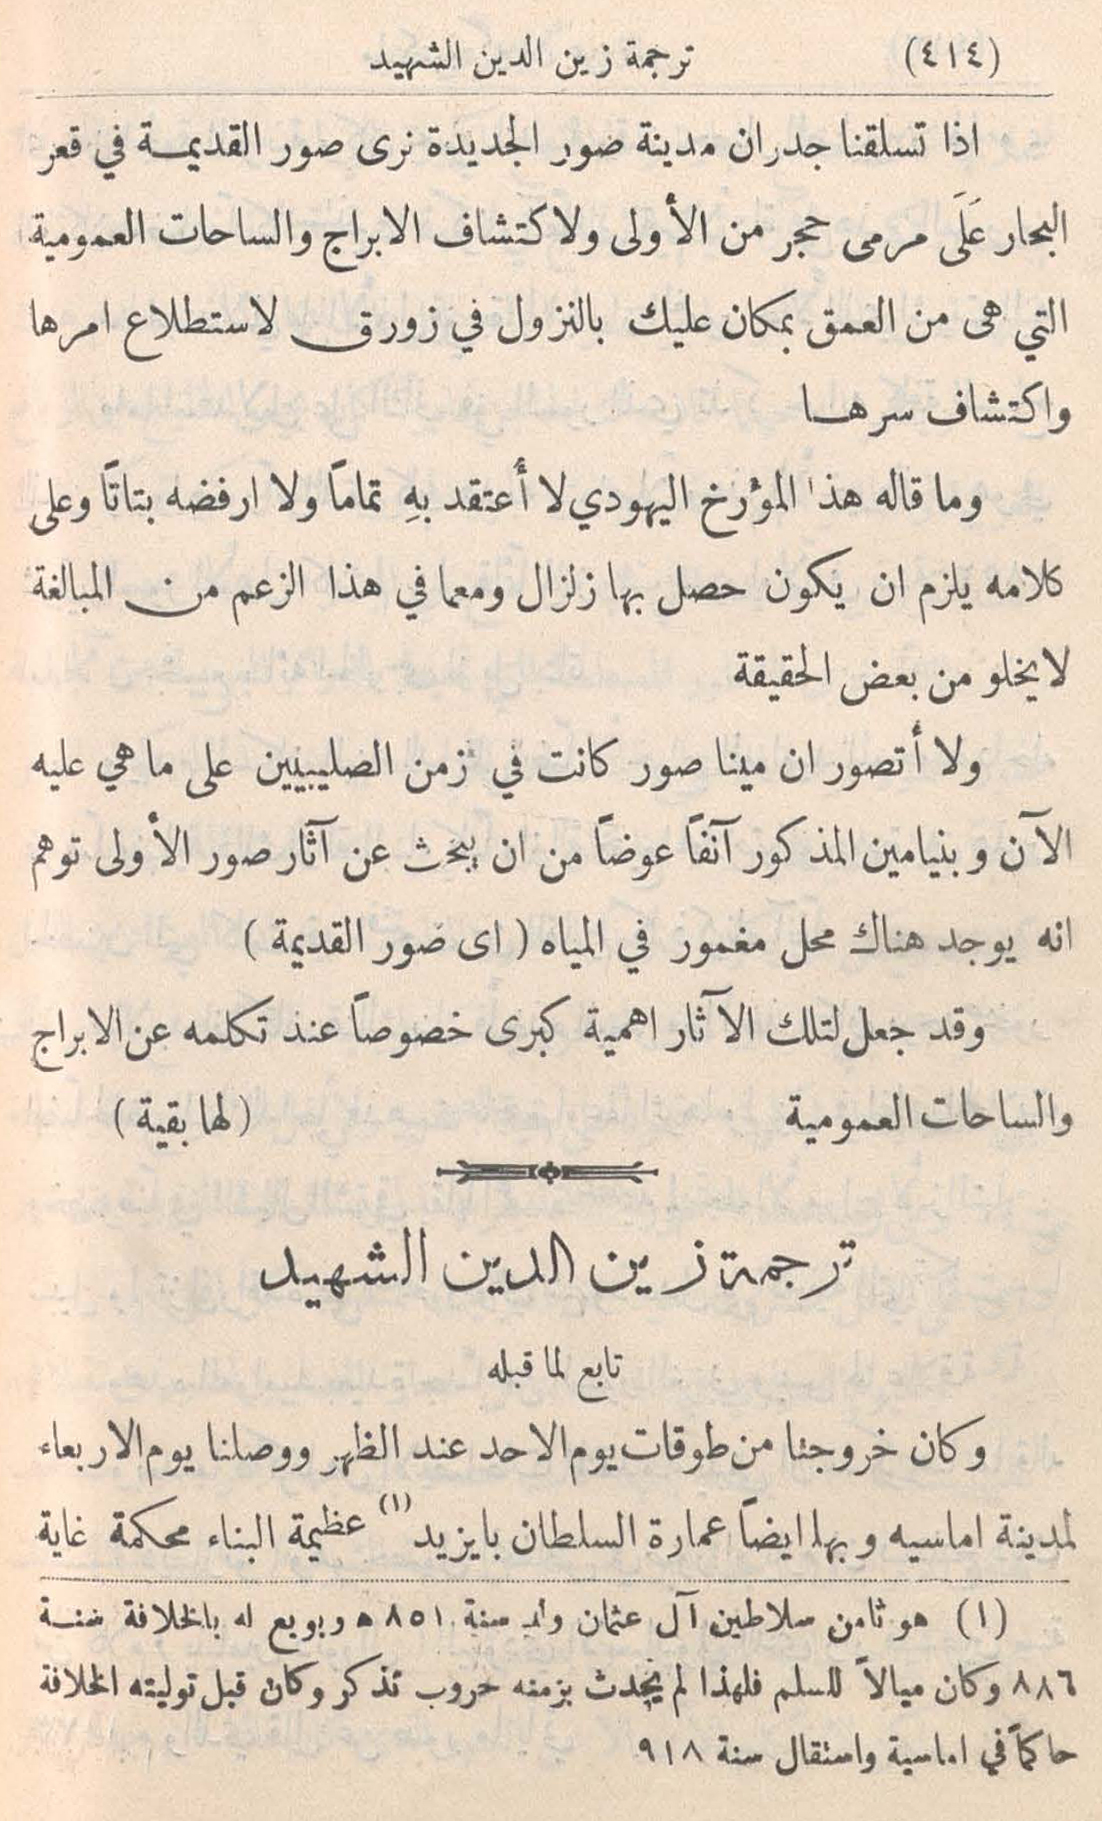 (٤١٤) ترجمة زين الدين الشهيد
اذا تسلقنا جدران مدينة صور الجديدة نرى صور القديمة في قعر
البحار عَلَى مرمى حجر من الأولى ولاكتشاف الابراج والساحات العمومية
التي هى من العمق بمكان عليك بالنزول في زورق لاستطلاع امرها
واكتشاف سرها
وما قاله هذا المؤرخ اليهودي لا أعتقد بهِ تماماً ولا ارفضه بتاتاً وعلى
كلامه يلزم ان يكون حصل بها زلزال ومعما في هذا الزعم من المبالغة
لا يخلو من بعض الحقيقة
ولا أتصور ان مينا صور كانت في زمن الصليبيين على ما هي عليه
الآن وبنيامين المذكور آنفاً عوضاً من ان يبحث عن آثار صور الأولى توهم
انه يوجد هناك محل مغمور في المياه ( اى صور القديمة )
وقد جعل لتلك الآثار اهمية كبرى خصوصاً عند تكلمه عن الابراج
والساحات العمومية (لها بقية )
ترجمة زين الدين الشهيد
تابع لما قبله
وكان خروجنا من طوقات يوم الاحد عند الظهر ووصلنا يوم الاربعاء
لمدينة اماسيه وبها ايضاً عمارة السلطان بايزيد (١) عظيمة البناء محكمة غاية
(١) هو ثامن سلاطين آل عثمان ولد سنة ٨٥١ ه وبويع له بالخلافة سنة
٨٨٦ وكان ميالاً للسلم فلهذا لم يحدث بزمنه حروب تذكر وكان قبل توليته الخلافة
حاكماً في اماسية واستقال سنة ٩١٨